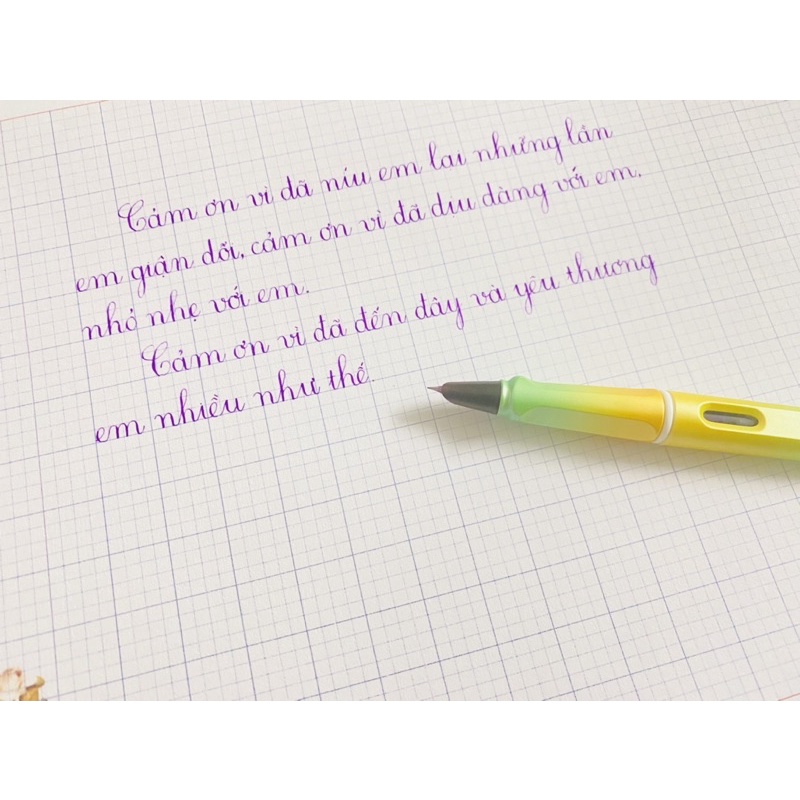 Cảm ơn vì đã níu em lại những lần
em giận dỗi, cảm ơn vì đã dịu dàng với em,
nhỏ nhẹ với em.
Cảm ơn vì đã đến đây và yêu thương
em nhiều như thế.